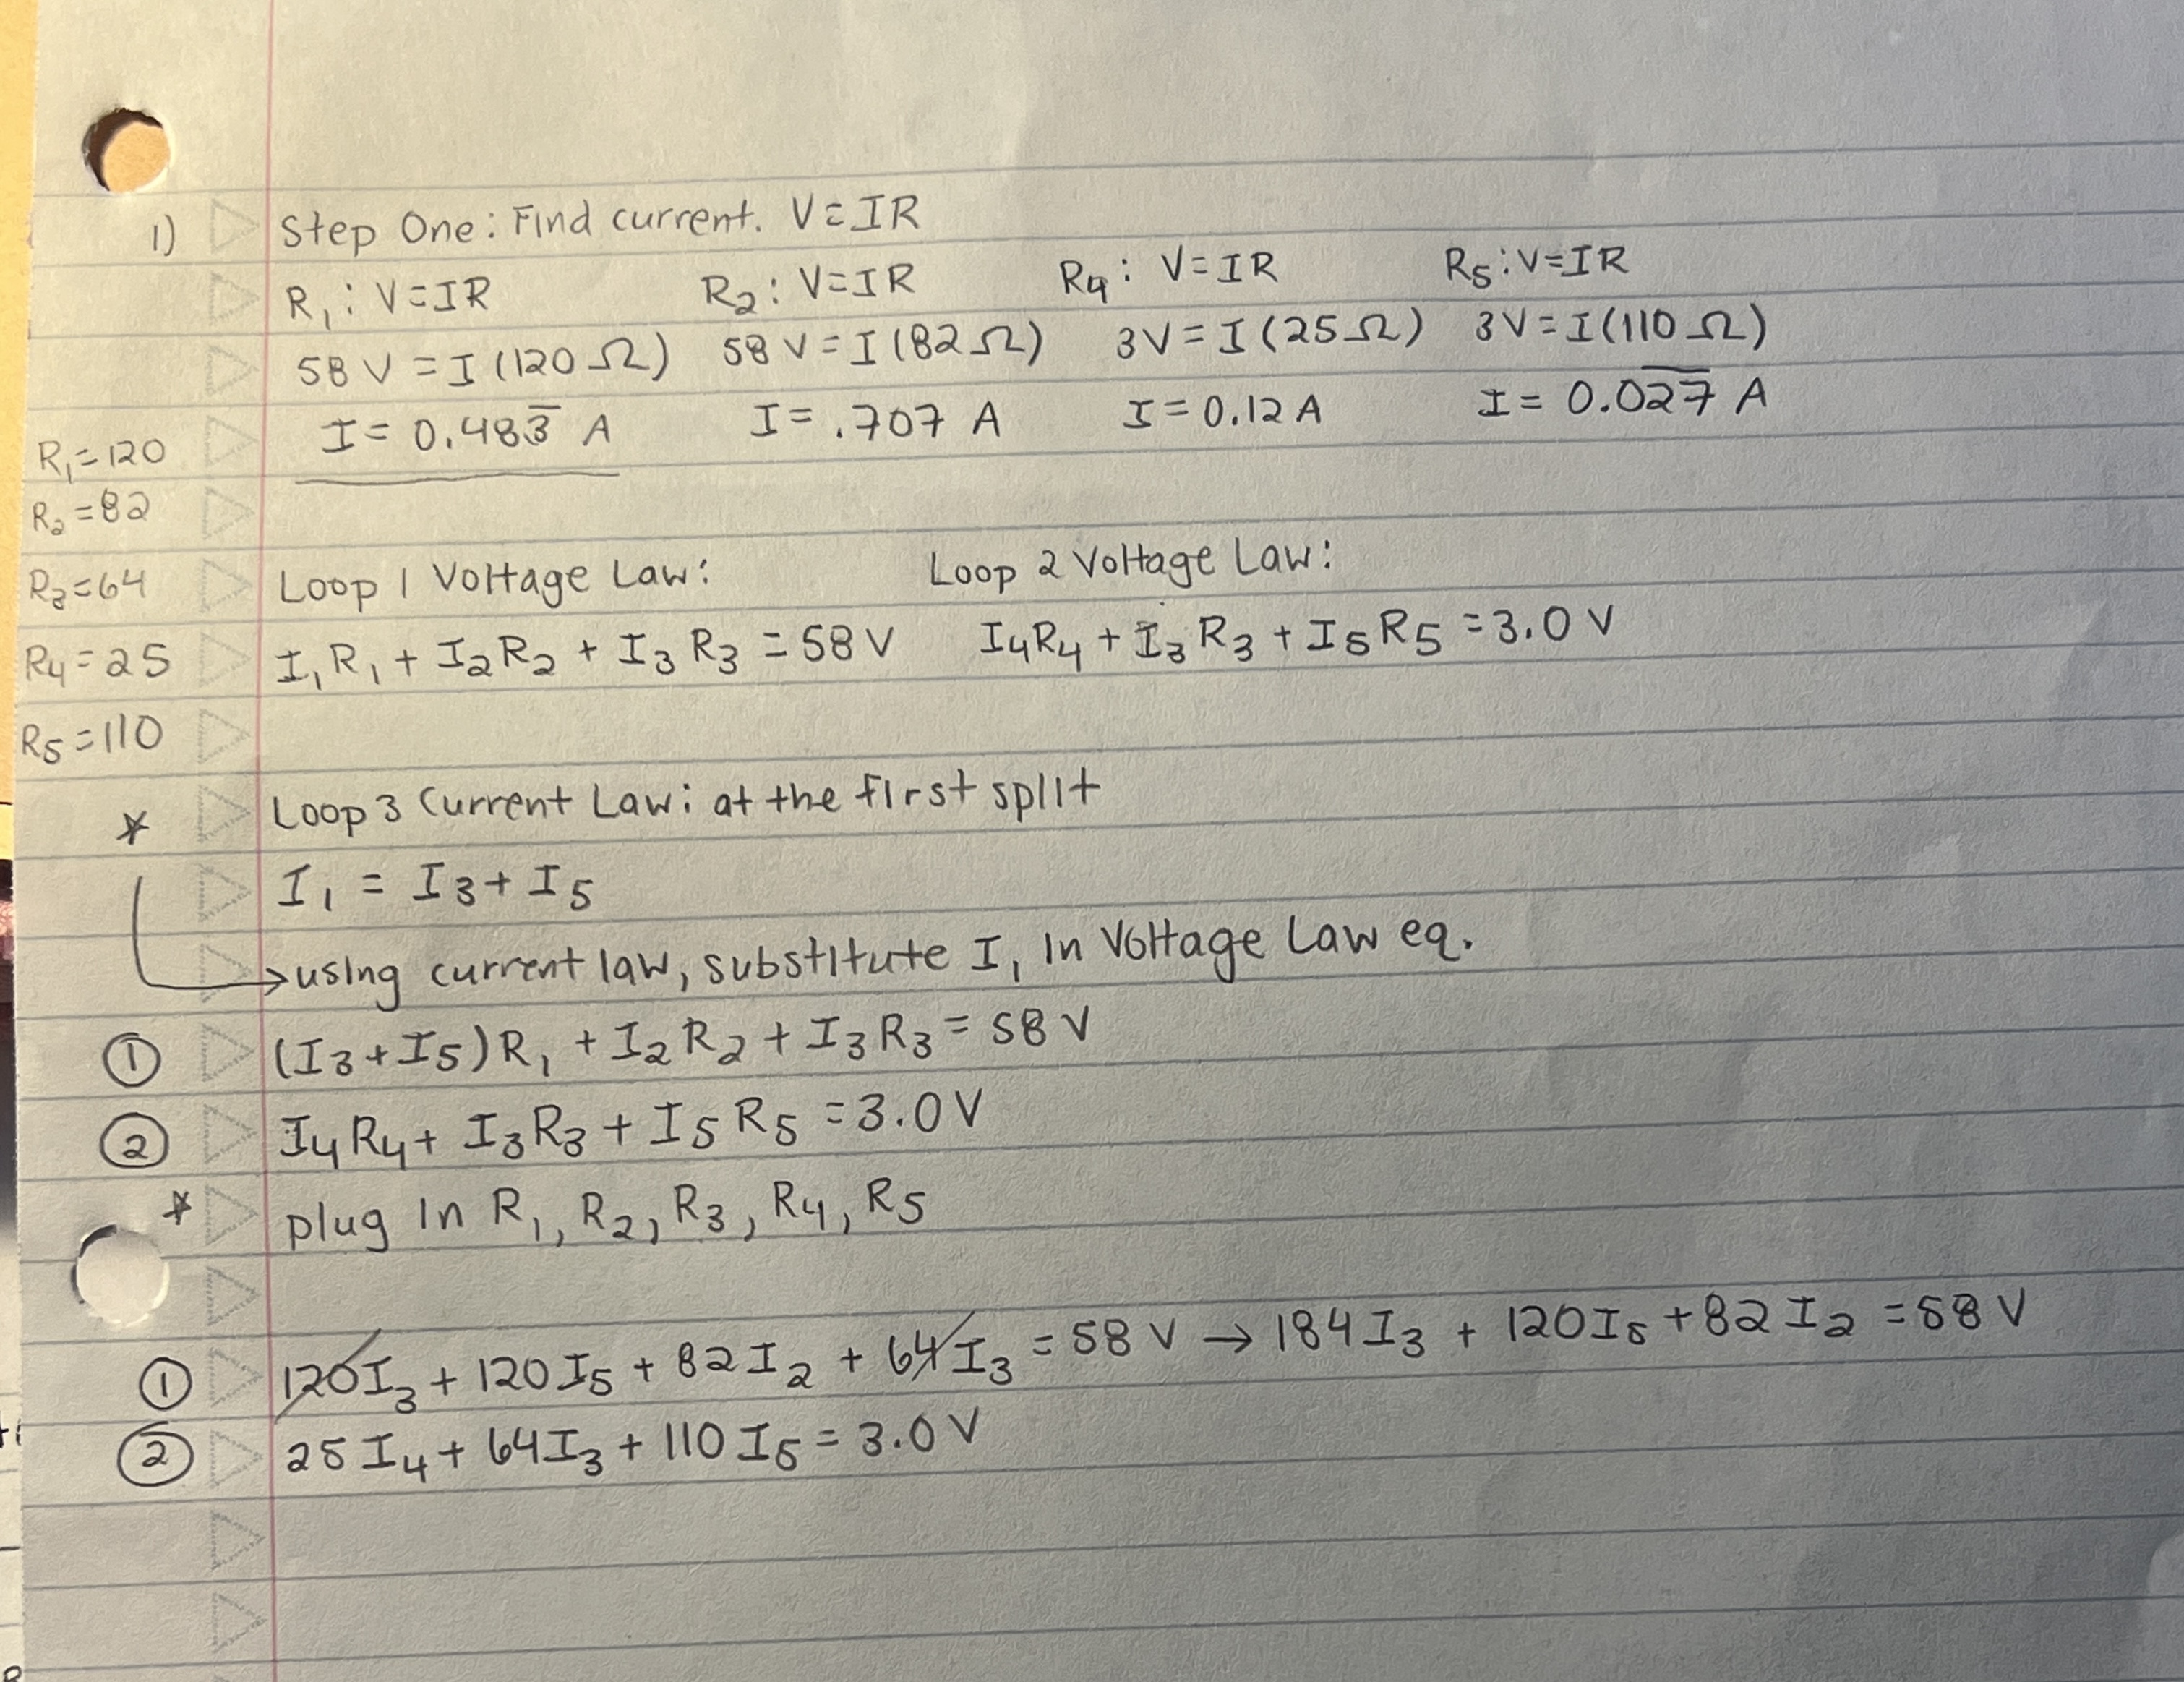 1) Step One: Find current. V=IR
R₁: V=IR R₂: V=IR R₄: V=IR R₅: V=IR
58 V = I (120 Ω) 58 V = I (82 Ω) 3V = I (25 Ω) 3V = I (110 Ω)
I = 0.483̅ A I = .707 A I = 0.12 A I = 0.02̅7̅ A
R₁=120
R₂=82
R₃=64
R₄=25
R₅=110
Loop 1 Voltage Law: Loop 2 Voltage Law:
I₁R₁ + I₂R₂ + I₃R₃ = 58 V I₄R₄ + I₃R₃ + I₅R₅ = 3.0 V
* Loop 3 Current Law: at the first split
I₁ = I₃ + I₅
→ using current law, substitute I₁ in Voltage Law eq.
① (I₃+I₅)R₁ + I₂R₂ + I₃R₃ = 58 V
② I₄R₄ + I₃R₃ + I₅R₅ = 3.0 V
* plug in R₁, R₂, R₃, R₄, R₅
① 120I₃ + 120I₅ + 82I₂ + 64I₃ = 58 V → 184I₃ + 120I₅ + 82I₂ = 58 V
② 25I₄ + 64I₃ + 110I₅ = 3.0 V